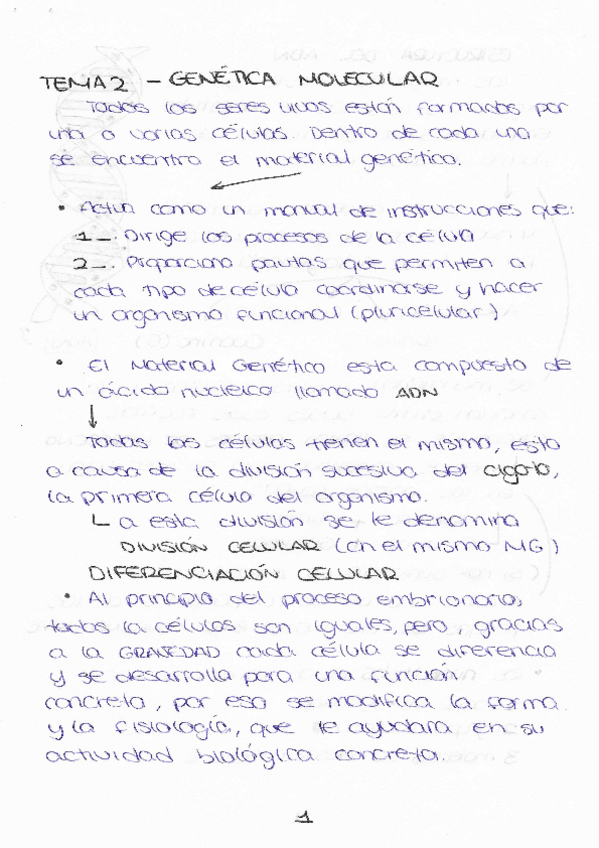 TEMA 2 - GENÉTICA MOLECULAR
Todos los seres vivos están formados por
una o varias células. Dentro de cada una
se encuentra el material genético.
• Actua como un manual de instrucciones que:
1_. Dirige los procesos de la célula
2_. Proporciona pautas que permiten a
cada tipo de célula coordinarse y hacer
un organismo funcional (pluricelular)
• El Material Genético esta compuesto de
un ácido nucleico llamado ADN
Todas las células tienen el mismo, esto
a causa de la división sucesiva del cigoto,
la primera célula del organismo.
a esta división se le denomina
DIVISIÓN CELULAR (con el mismo MG)
DIFERENCIACIÓN CELULAR
• Al principio del proceso embrionario,
todas la células son iguales, pero, gracias
a la GRAVEDAD cada célula se diferencia
y se desarrolla para una función
concreta, por eso se modifica la forma
y la fisiología, que le ayudara en su
actividad biológica concreta.
1